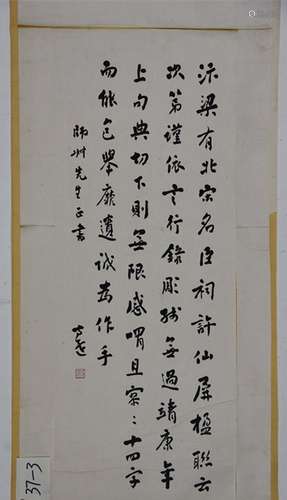 汴梁有北宋名臣祠許仙屏楹聯云
次第謹依言行錄彫殘無過靖康年
上句典切下則無限感喟且寥〻十四字
而能包舉靡遺誠為作手
州先生正書
37-3